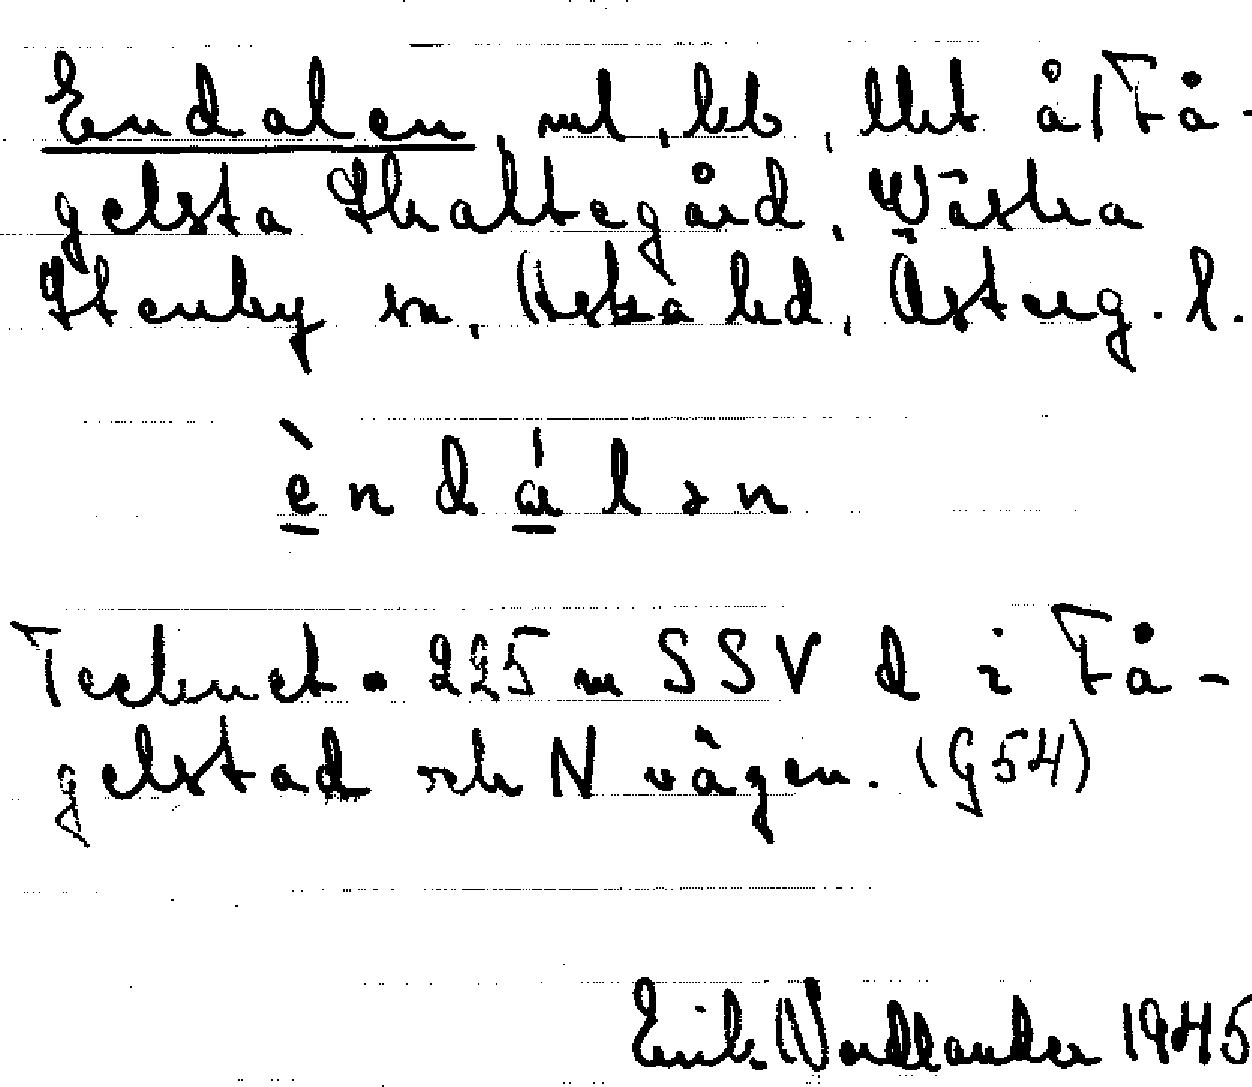 Endalen, utl, bb, tht å 1 Få-
gelsta Skattegård, Västra
Stenby sn, Aska hd, Österg. l.
èndálən
Tecknet • 225 m SSV d i Få-
gelstad och N vägen. (G54)
Erik Nordlander 1945